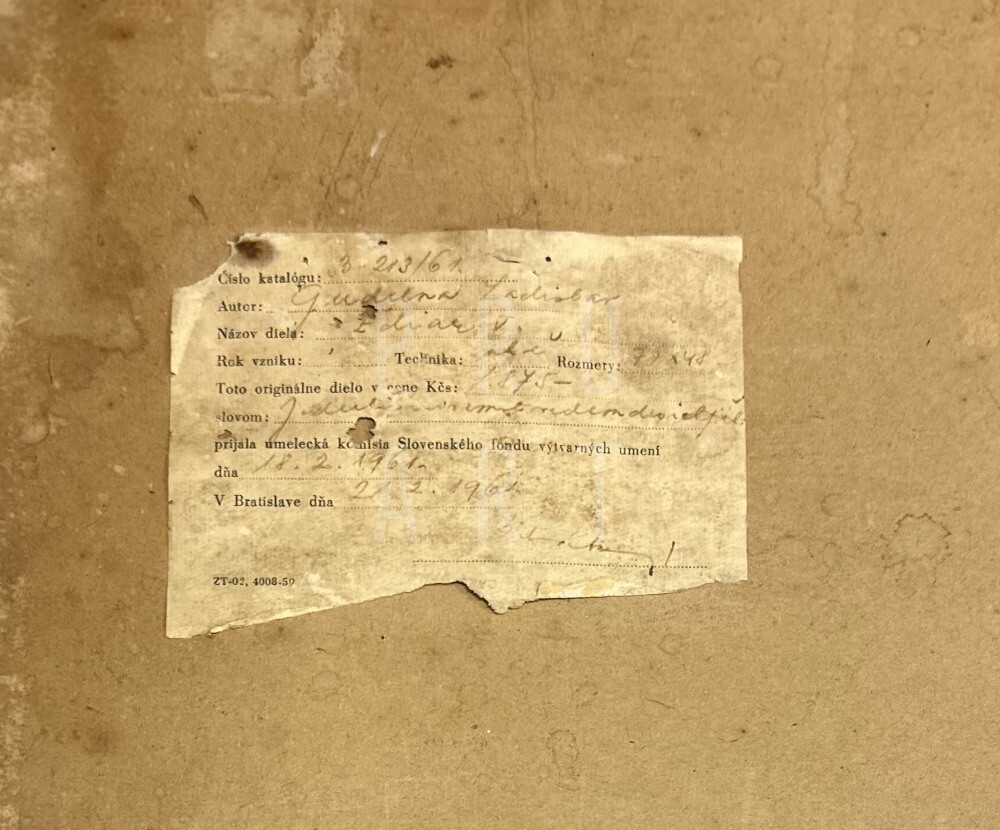 Číslo katalógu: 3 213/61.
Autor: Guderna Ladislav
Názov diela: Ždiar V.
Rok vzniku: Technika: olej Rozmery: 79 x 48
Toto originálne dielo v cene Kčs: 1875-
slovom:
prijala umelecká komisia Slovenského fondu výtvarných umení
dňa 18. 2. 1961.
V Bratislave dňa 21. 2. 1961.
ZT-02, 4008-59